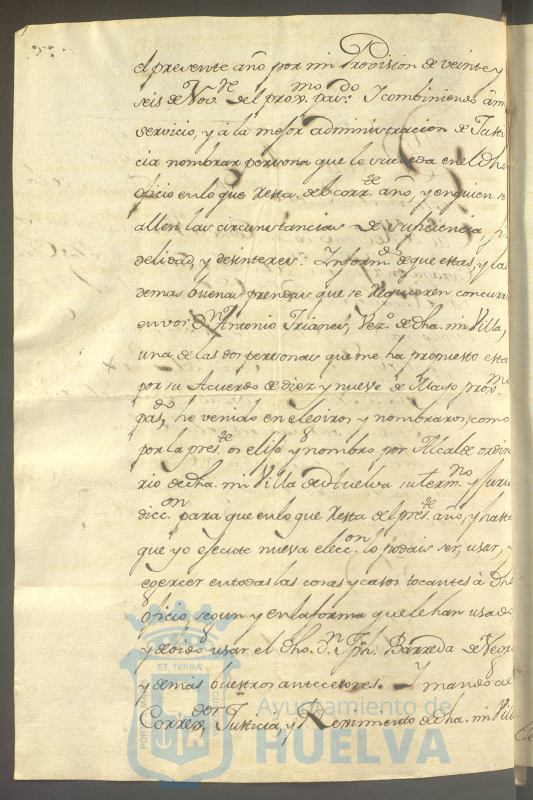 el presente año por mi Provision de veinte y
seis de Nov.e del prox.mo pas.do Y combiniendo à mi
servicio, y à la mejor administracion de Justi
cia nombrar persona que le suceda en el dho
oficio en lo que resta del corr.te año, y en quien se
allen las circunstancias de suficiencia, fi
delidad, y desinteres: Inform.do de que estas, y las
demas buenas prendas que se requieren concurren
en vos D.n Antonio Trianes, Vez.o de dha. mi Villa,
una de las dos personas que me ha propuesto esta
por su Acuerdo de diez y nueve de Mayo prox.mo
pas.do, he venido en elegiros y nombraros, como
por la pres.te os elijo y nombro por Alcalde ordina
rio de dha. mi Villa de Huelva su term.no y juris
dicc.on para que en lo que resta del pres.te año, y hasta
que yo ejecute nueva elecc.on lo podais ser, usar, y
egercer en todas las cosas y casos tocantes à dho
oficio segun y en la forma que le han usado
y debido usar el dho. D.n Jph. Barreda de
y demás buestros antecesores. Y mando al
Correx.dor Justicia, y Rexmiento de dha. mi Villa
ET TERRÆ
Ayuntamiento de
HUELVA